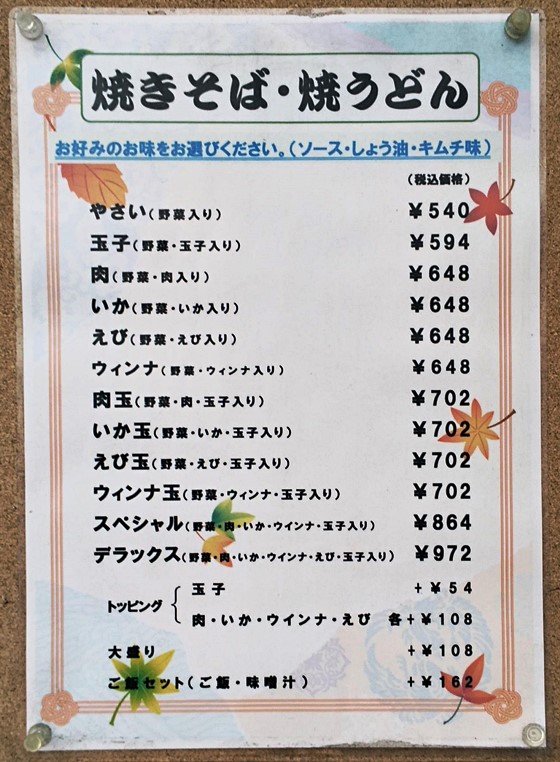 焼きそば・焼うどん
お好みのお味をお選びください。（ソース・しょう油・キムチ味）
（税込価格）
やさい（野菜入り） ¥540
玉子（野菜・玉子入り） ¥594
肉（野菜・肉入り） ¥648
いか（野菜・いか入り） ¥648
えび（野菜・えび入り） ¥648
ウィンナ（野菜・ウィンナ入り） ¥648
肉玉（野菜・肉・玉子入り） ¥702
いか玉（野菜・いか・玉子入り） ¥702
えび玉（野菜・えび・玉子入り） ¥702
ウィンナ玉（野菜・ウィンナ・玉子入り） ¥702
スペシャル（野菜・肉・いか・ウインナ・玉子入り） ¥864
デラックス（野菜・肉・いか・ウインナ・えび・玉子入り） ¥972
玉子 +¥54
トッピング
肉・いか・ウインナ・えび 各+¥108
大盛り +¥108
ご飯セット（ご飯・味噌汁） +¥162